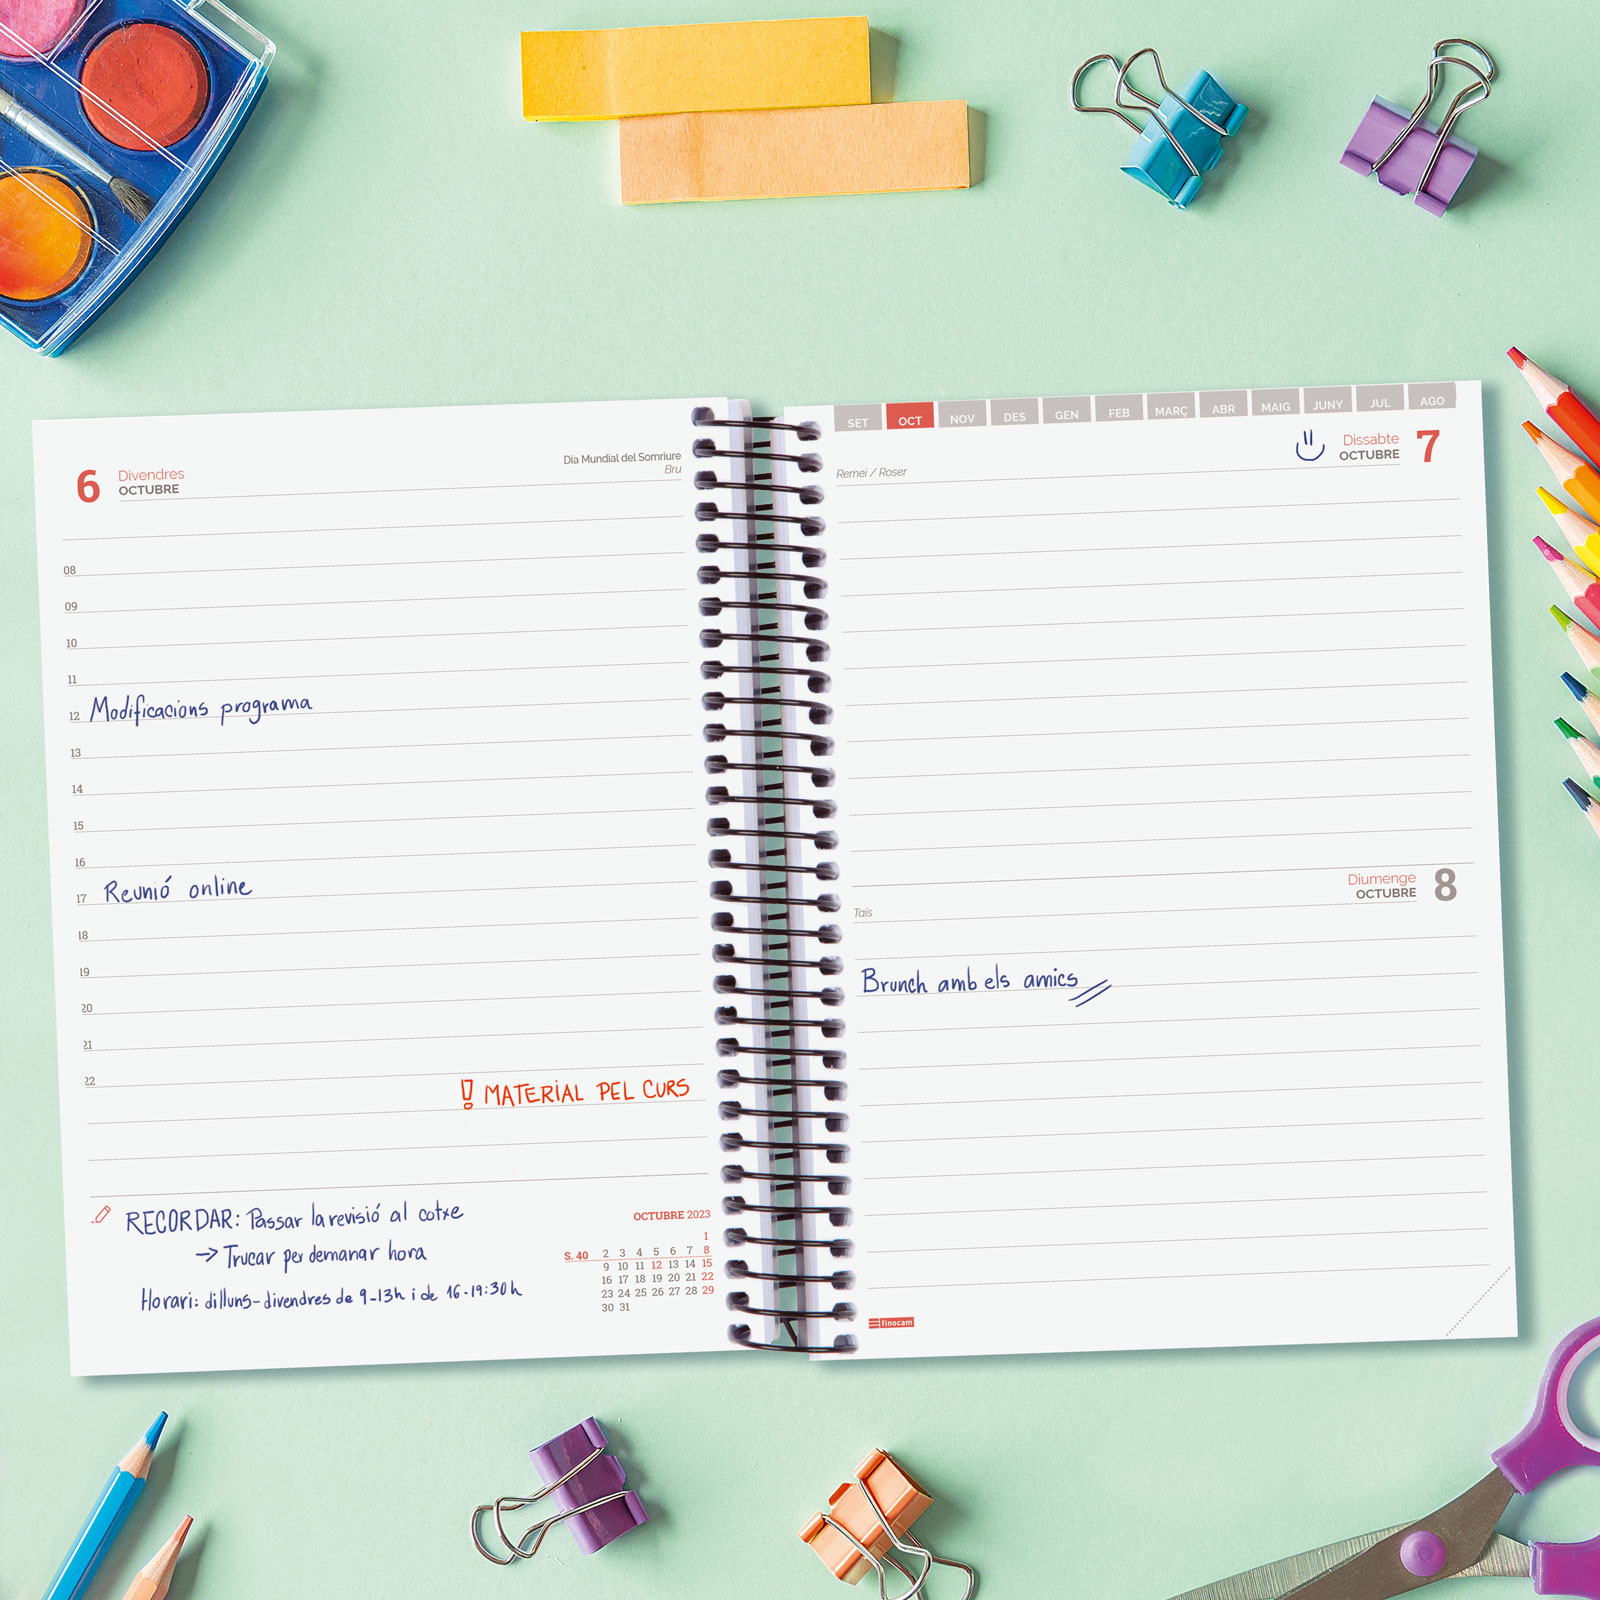 6 Divendres
OCTUBRE
Dia Mundial del Somriure
Bru
08
09
10
11
12 Modificacions programa
13
14
15
16
17 Reunió online
18
19
20
21
22
! MATERIAL PEL CURS
RECORDAR: Passar la revisió al cotxe
→ Trucar per demanar hora
Horari: dilluns-divendres de 9-13h i de 16-19:30h
OCTUBRE 2023
1
S. 40 2 3 4 5 6 7 8
9 10 11 12 13 14 15
16 17 18 19 20 21 22
23 24 25 26 27 28 29
30 31
SET OCT NOV DES GEN FEB MARÇ ABR MAIG JUNY JUL AGO
Dissabte 7
OCTUBRE
Remei / Roser
Diumenge 8
OCTUBRE
Tais
Brunch amb els amics
finocam